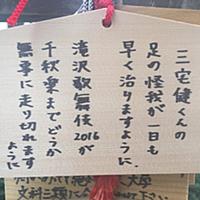 三宅健くんの
足の怪我が一日も
早く治りますように。
滝沢歌舞伎2016が
千秋楽までどうか
無事に走り切れます
ように